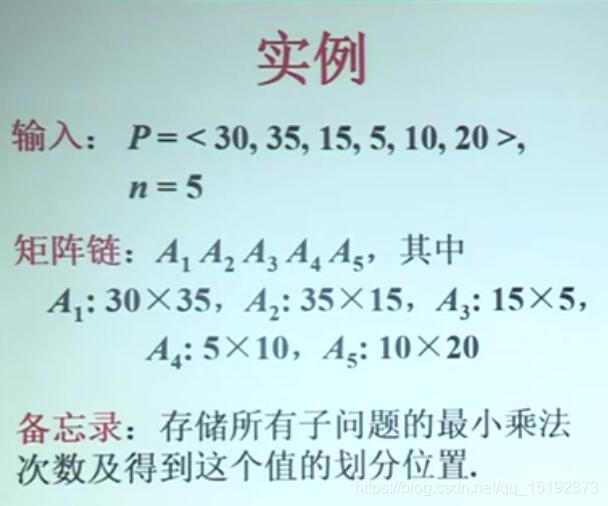 实例
输入： P = < 30, 35, 15, 5, 10, 20 >,
n = 5
矩阵链：A₁ A₂ A₃ A₄ A₅，其中
A₁: 30×35，A₂: 35×15，A₃: 15×5，
A₄: 5×10，A₅: 10×20
备忘录：存储所有子问题的最小乘法
次数及得到这个值的划分位置.
https://blog.csdn.net/qq_15192373